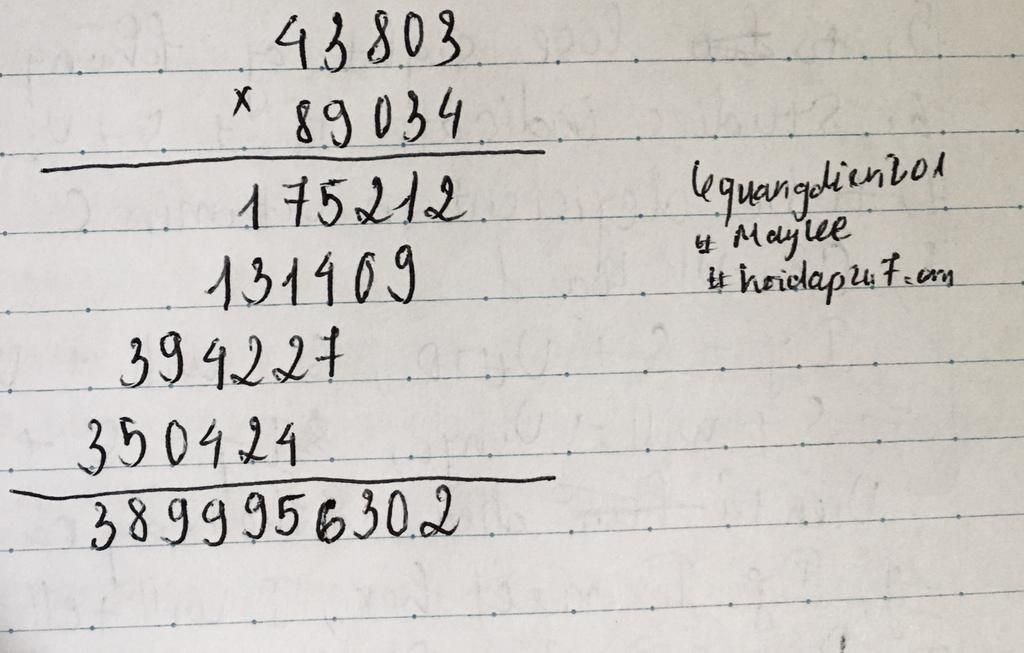 43803
x 89034
175212
131409
394227
350424
3899956302
lequangdien201
# Maylee